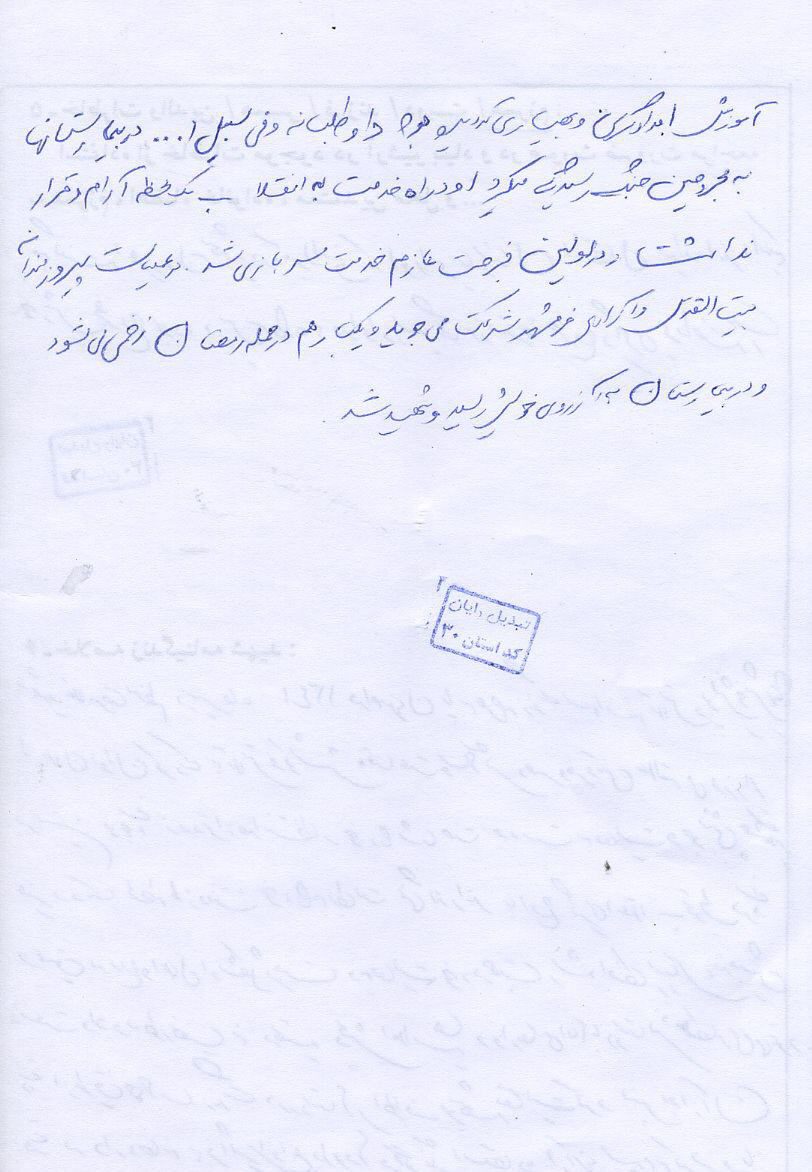 آموزش امدادگری و بهیاری دیده بود و داوطلبانه و فی سبیل ا... در بیمارستانها
به مجروحین جنگ رسیدگی میکرد او در راه خدمت به انقلاب یک لحظه آرام و قرار
نداشت و در اولین فرصت عازم خدمت سربازی شد. در عملیات پیروزمندانه
بیت المقدس و آزادی خرمشهر شرکت می جوید و یکبار هم در حمله رمضان زخمی می شود
و در بیمارستان به آرزوی خویش رسید و شهید شد.
تبدیل رایان
کد استان ۳۰